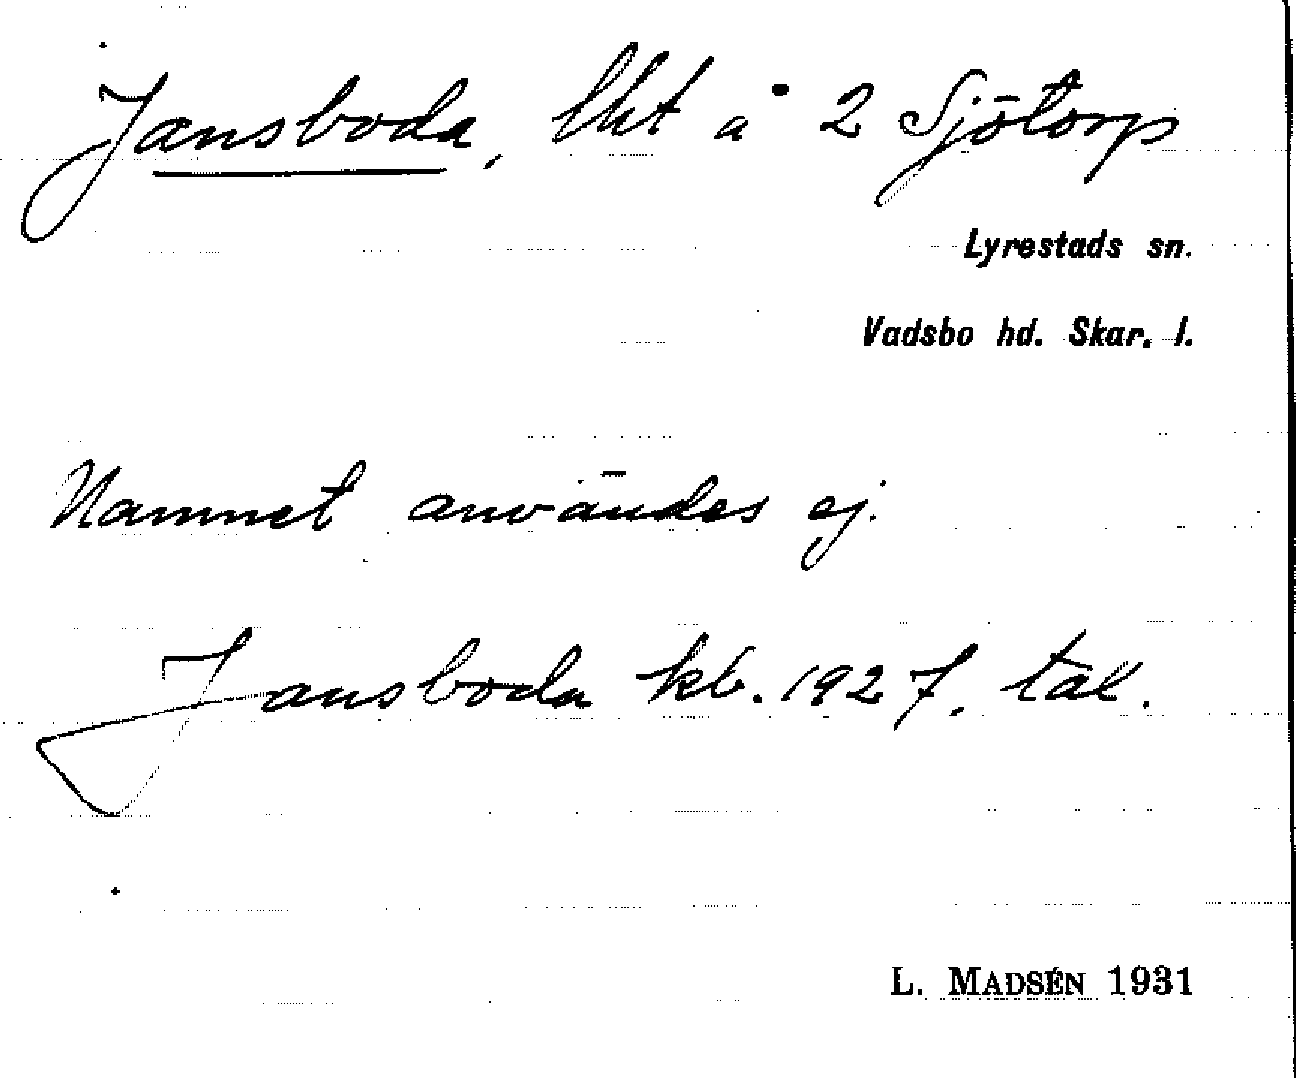 Jansboda, lht å 2 Sjötorp
Lyrestads sn.
Vadsbo hd. Skar. l.
Namnet användes ej.
Jansboda kb. 1927. tal.
L. MADSÉN 1931